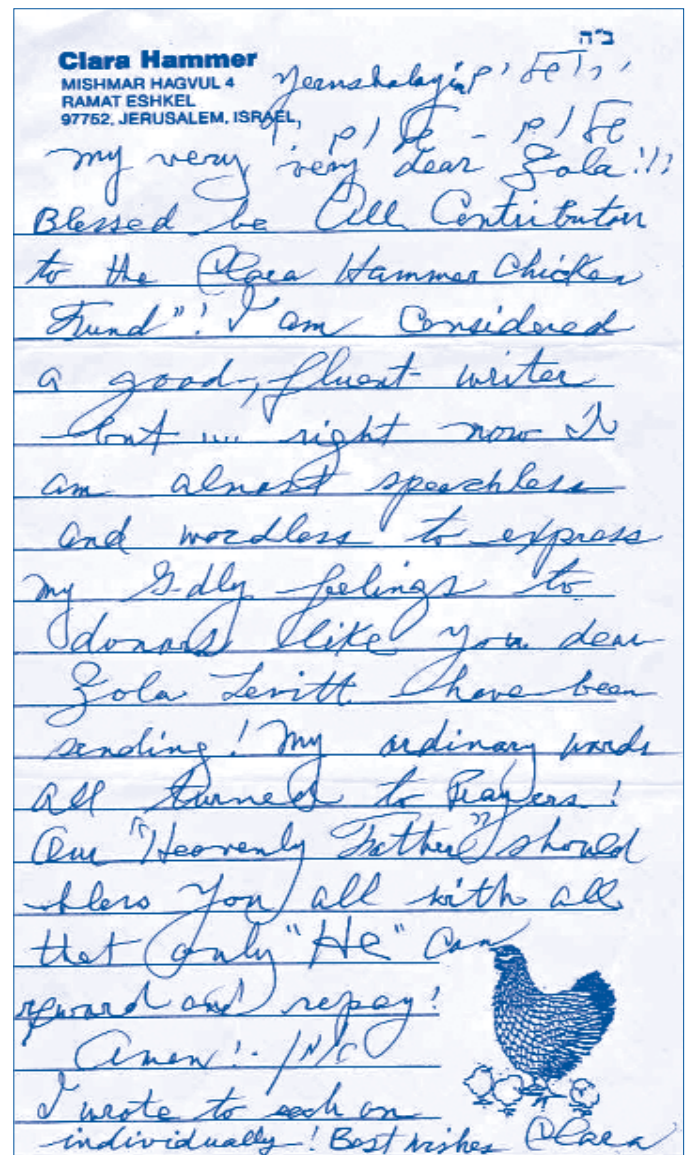 ב"ה
Clara Hammer
MISHMAR HAGVUL 4
RAMAT ESHKEL
97752, JERUSALEM, ISRAEL
Yerushalayim ירושלים
שלום - שלום
my very very dear Zola!!!
Blessed be All Contributors
to the Clara Hammer Chicken
Fund"! I am Considered
a good, fluent writer
but .... right now I
am almost speechless
and wordless to express
my G-dly feelings to
donors like you dear
Zola Levitt have been
sending! My ordinary words
all turned to Prayers!
Our "Heavenly Father" should
bless You all with all
that only "He" can
reward and repay!
Amen!. אמן
I wrote to each one
individually! Best wishes Clara